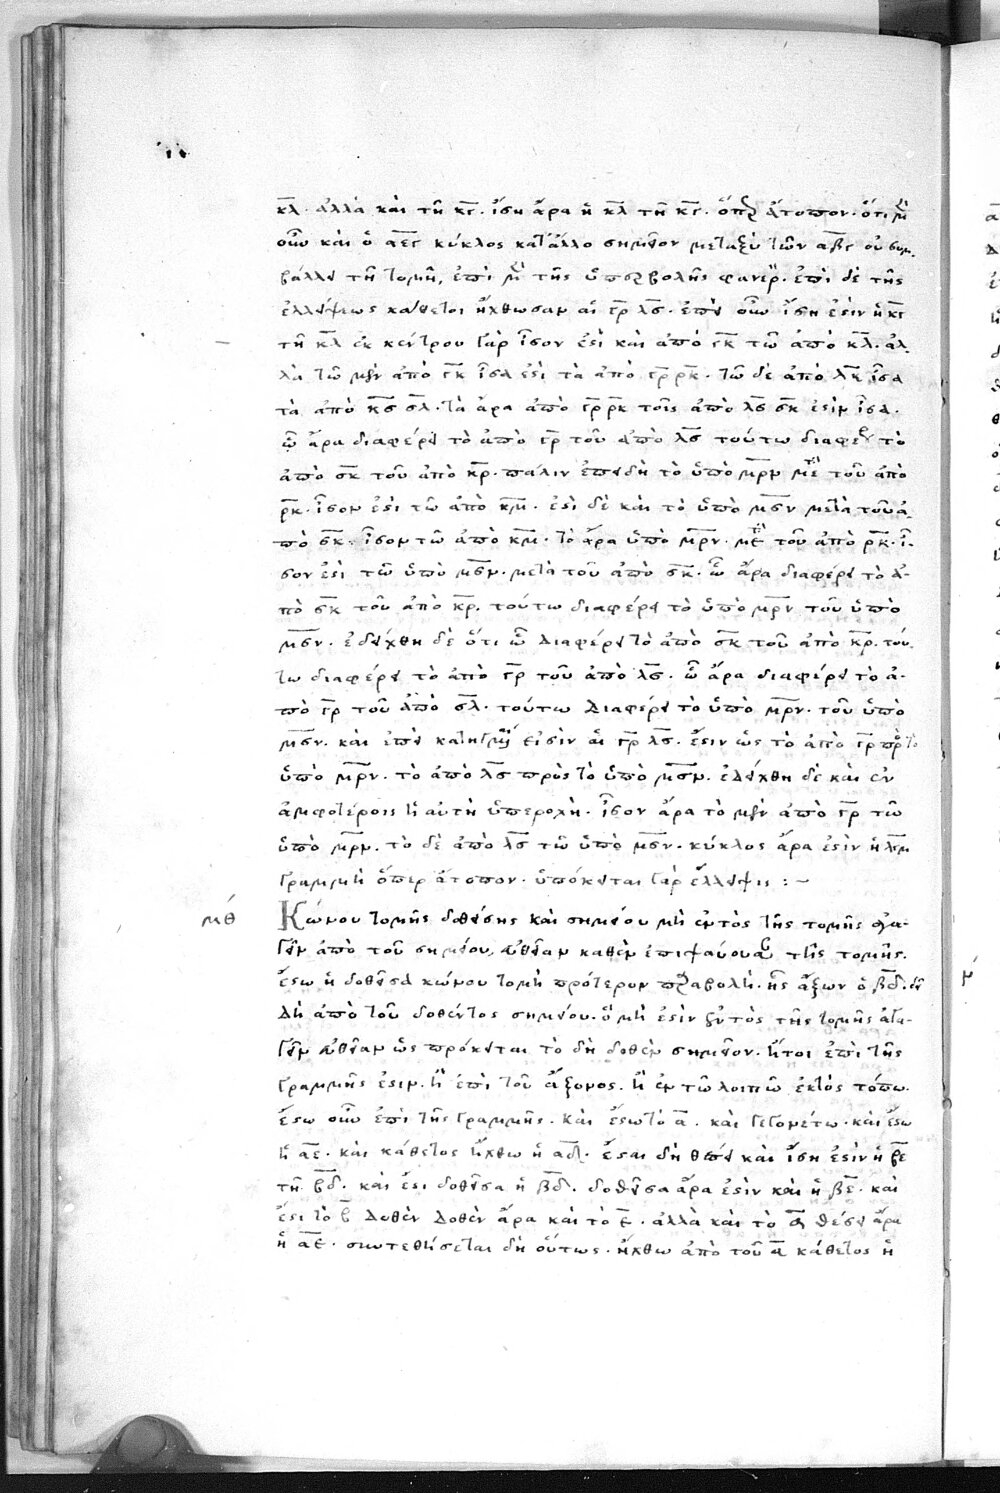 κλ. ἀλλὰ καὶ τῆ κγ. ἴση ἄρα ἡ κλ τῆ κγ. ὅπερ ἄτοπον. ὅτι μὲν
οὖν καὶ ὁ αεγ κύκλος κατ' ἄλλο σημεῖον μεταξὺ τῶν αβγ οὐ συμ-
βάλλει τῆ τομῆ, ἐπὶ μὲν τῆς ὑπερβολῆς φανερόν. ἐπὶ δὲ τῆς
ἐλλείψεως κάθετοι ἤχθωσαν αἱ γρ λς. ἐπεὶ οὖν ἴση ἐστὶν ἡ κγ
τῆ κλ ἐκ κέντρου γὰρ ἴσον ἐστὶ καὶ ἀπὸ γκ τῶ ἀπὸ κλ. ἀλ-
λὰ τῶ μὲν ἀπὸ γκ ἴσα ἐστὶ τὰ ἀπὸ γρ ρκ. τῶ δὲ ἀπὸ λκ ἴσα
τὰ ἀπὸ κς σλ. τὰ ἄρα ἀπὸ γρ ρκ τοῖς ἀπὸ λς σκ ἐστὶν ἴσα.
ὧ ἄρα διαφέρει τὸ ἀπὸ γρ τοῦ ἀπὸ λς τούτω διαφέρει τὸ
ἀπὸ σκ τοῦ ἀπὸ κρ. πάλιν ἐπειδὴ τὸ ὑπὸ μρν μετὰ τοῦ ἀπὸ
ρκ. ἴσον ἐστὶ τῶ ἀπὸ κμ. ἐστὶ δὲ καὶ τὸ ὑπὸ μσν μετὰ τοῦ ἀ-
πὸ σκ. ἴσον τῶ ἀπὸ κμ. τὸ ἄρα ὑπὸ μρν. μετὰ τοῦ ἀπὸ ρκ. ἴ-
σον ἐστὶ τῶ ὑπὸ μσν. μετὰ τοῦ ἀπὸ σκ. ὧ ἄρα διαφέρει τὸ ἀ-
πὸ σκ τοῦ ἀπὸ κρ. τούτω διαφέρει τὸ ὑπὸ μρν τοῦ ὑπὸ
μσν. ἐδείχθη δὲ ὅτι ὧ διαφέρει τὸ ἀπὸ σκ τοῦ ἀπὸ κρ. τού-
τω διαφέρει τὸ ἀπὸ γρ τοῦ ἀπὸ λς. ὧ ἄρα διαφέρει τὸ ἀ-
πὸ γρ τοῦ ἀπὸ σλ. τούτω διαφέρει τὸ ὑπὸ μρν. τοῦ ὑπὸ
μσν. καὶ ἐπεὶ κατηγμέναι εἰσὶν αἱ γρ λς. ἔστιν ὡς τὸ ἀπὸ γρ πρὸς τὸ
ὑπὸ μρν. τὸ ἀπὸ λς πρὸς τὸ ὑπὸ μσν. ἐδείχθη δὲ καὶ ἐν
ἀμφοτέροις ἡ αὐτὴ ὑπεροχή. ἴσον ἄρα τὸ μὲν ἀπὸ γρ τῶ
ὑπὸ μρν. τὸ δὲ ἀπὸ λς τῶ ὑπὸ μσν. κύκλος ἄρα ἐστὶν ἡ λγμ
γραμμὴ ὅπερ ἄτοπον. ὑπόκειται γὰρ ἔλλειψις : ~
μθ Κώνου τομῆς δοθείσης καὶ σημείου μὴ ἐντὸς τῆς τομῆς ἀγα-
γεῖν ἀπὸ τοῦ σημείου, εὐθεῖαν καθ' ἓν ἐπιψαύουσαν τῆς τομῆς.
ἔστω ἡ δοθεῖσα κώνου τομὴ πρότερον παραβολὴ. ἧς ἄξων ὁ βδ. δεῖ
δὴ ἀπὸ τοῦ δοθέντος σημείου. ὃ μή ἐστιν ἐντὸς τῆς τομῆς ἀγα-
γεῖν εὐθεῖαν ὡς πρόκειται τὸ δὴ δοθὲν σημεῖον. ἤτοι ἐπὶ τῆς
γραμμῆς ἐστιν. ἢ ἐπὶ τοῦ ἄξονος. ἢ ἐν τῶ λοιπῶ ἐκτὸς τόπω.
ἔστω οὖν ἐπὶ τῆς γραμμῆς. καὶ ἔστω τὸ α. καὶ γεγονέτω. καὶ ἔστω
ἡ αε. καὶ κάθετος ἤχθω ἡ αδ. ἔσται δὴ θέσει καὶ ἴση ἐστὶν ἡ βε
τῆ βδ. καὶ ἐστι δοθεῖσα ἡ βδ. δοθεῖσα ἄρα ἐστὶν καὶ ἡ βε. καὶ
ἐστι τὸ β δοθὲν δοθὲν ἄρα καὶ τὸ ε. ἀλλὰ καὶ τὸ α θέσει ἄρα
ἡ αε. συντεθήσεται δὴ οὕτως. ἤχθω ἀπὸ τοῦ α κάθετος ἡ